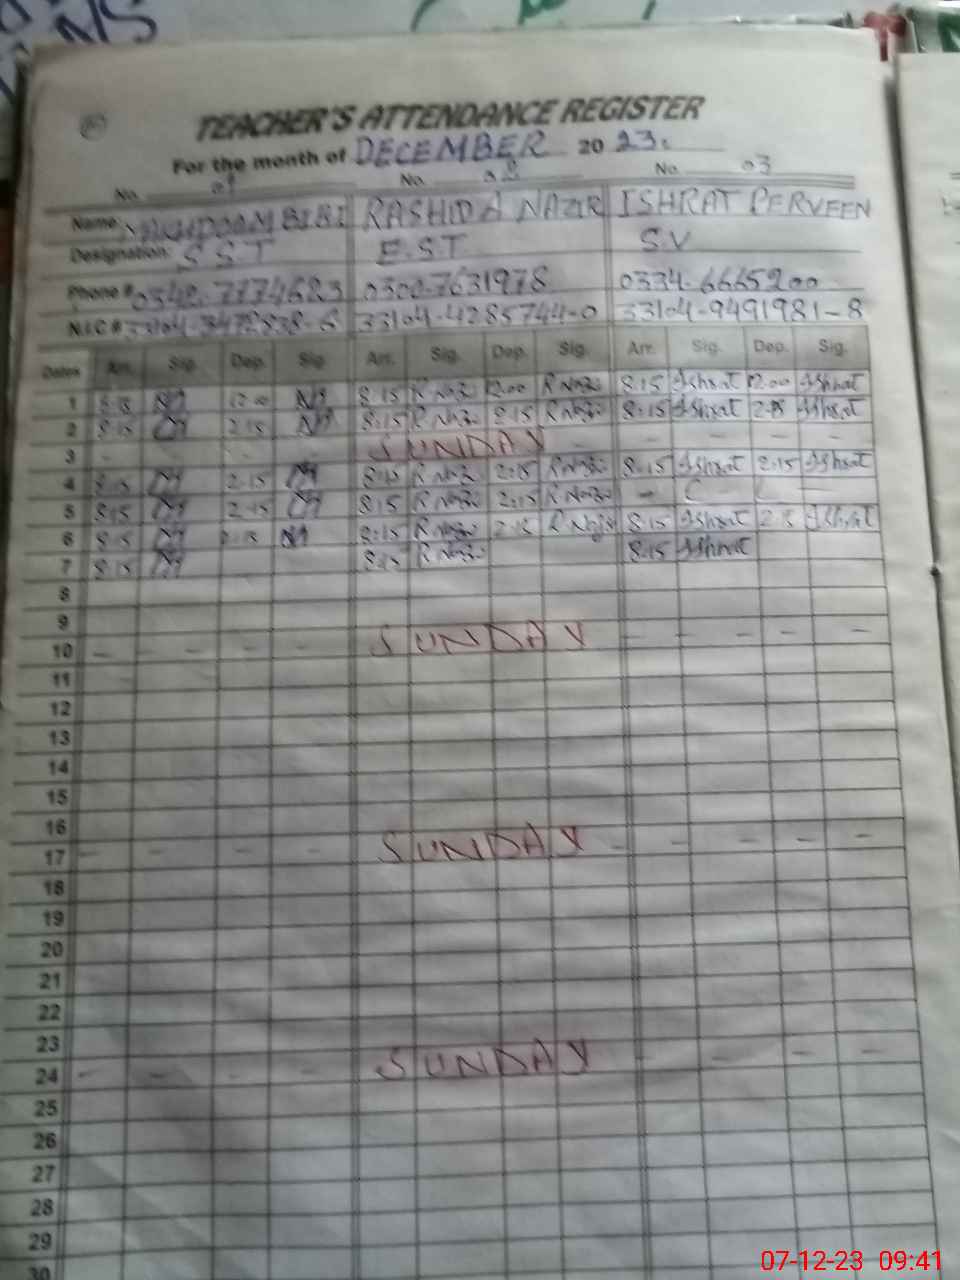 TEACHER'S ATTENDANCE REGISTER
For the month of DECEMBER 20 23.
No. 01 No. 02 No. 03
Name: BIBI RASHIDA NAZIR ISHRAT PERVEEN
Designation: S.S.T E.S.T S.V
Phone # 0300-7631978 0334-6665200
N.I.C # 33104-4285744-0 33104-9491981-8
Dates Arr. Sig. Dep. Sig. Arr. Sig. Dep. Sig. Arr. Sig. Dep. Sig.
1 8:15 12:00 8:15 12:00 8:15 Ishrat 12:00 Ishrat
2 8:15 2:15 8:15 2:15 8:15 Ishrat 2:15 Ishrat
3 - - - SUNDAY - - - - -
4 8:15 2:15 8:15 2:15 8:15 Ishrat 2:15 Ishrat
5 8:15 2:15 8:15 2:15 - C L -
6 8:15 2:15 8:15 2:15 8:15 Ishrat 2:15 Ishrat
7 8:15 8:15 8:15 Ishrat
8
9
10 - - - - SUNDAY - - - - -
11
12
13
14
15
16
17 - - - - SUNDAY - - - - -
18
19
20
21
22
23
24 - - - - SUNDAY - - - -
25
26
27
28
29
30
07-12-23 09:41